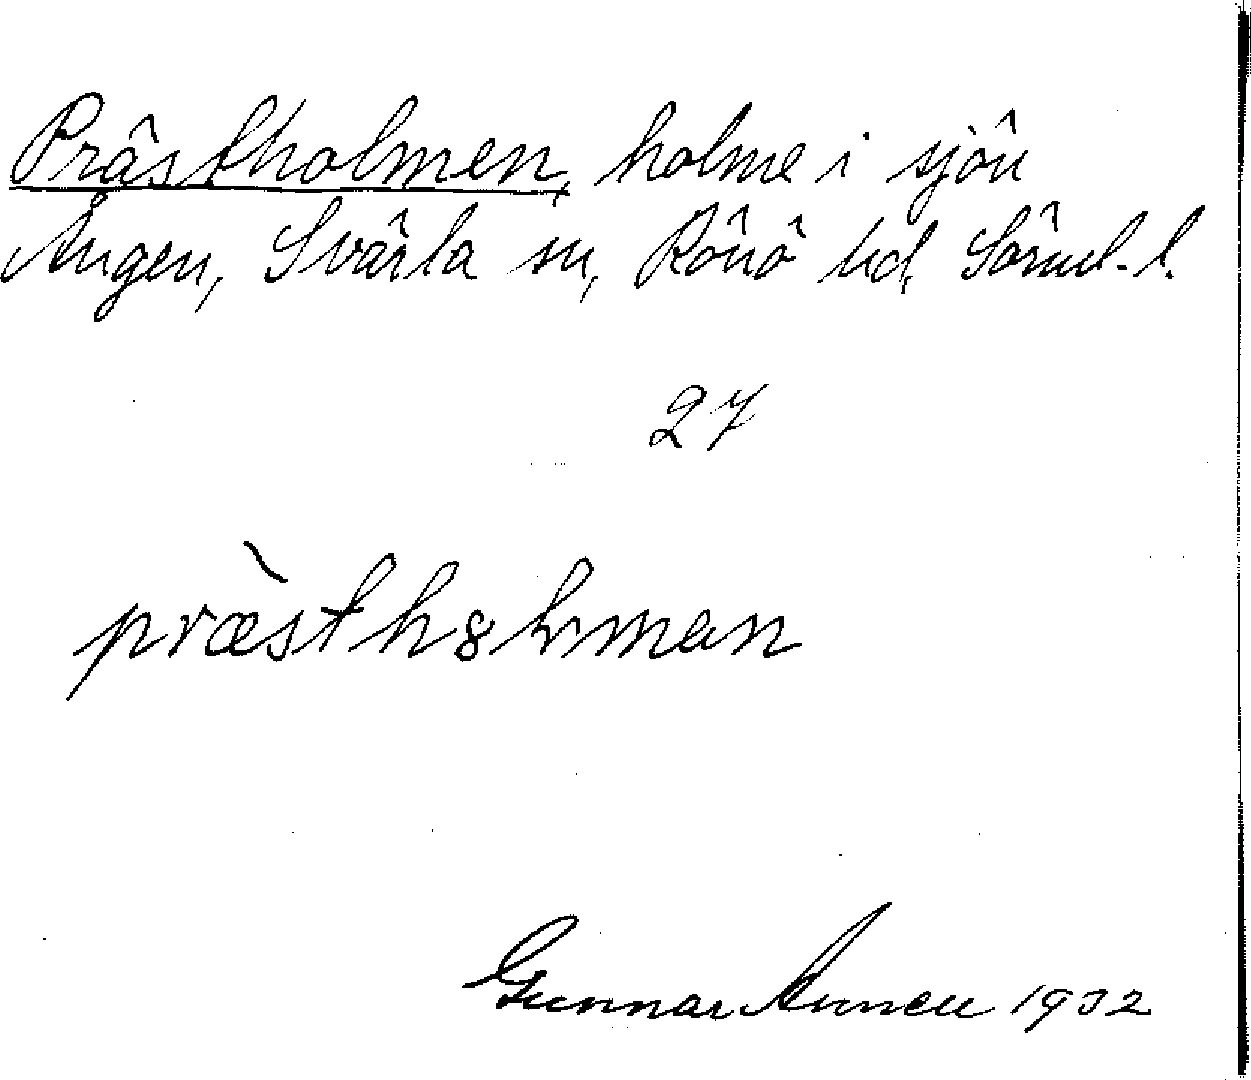 Prästholmen, holme i sjön
Ången, Svärta sn, Rönö hd, Söderml. l.
27
prӕ̀sthɷlman
Gunnar Annell 1932